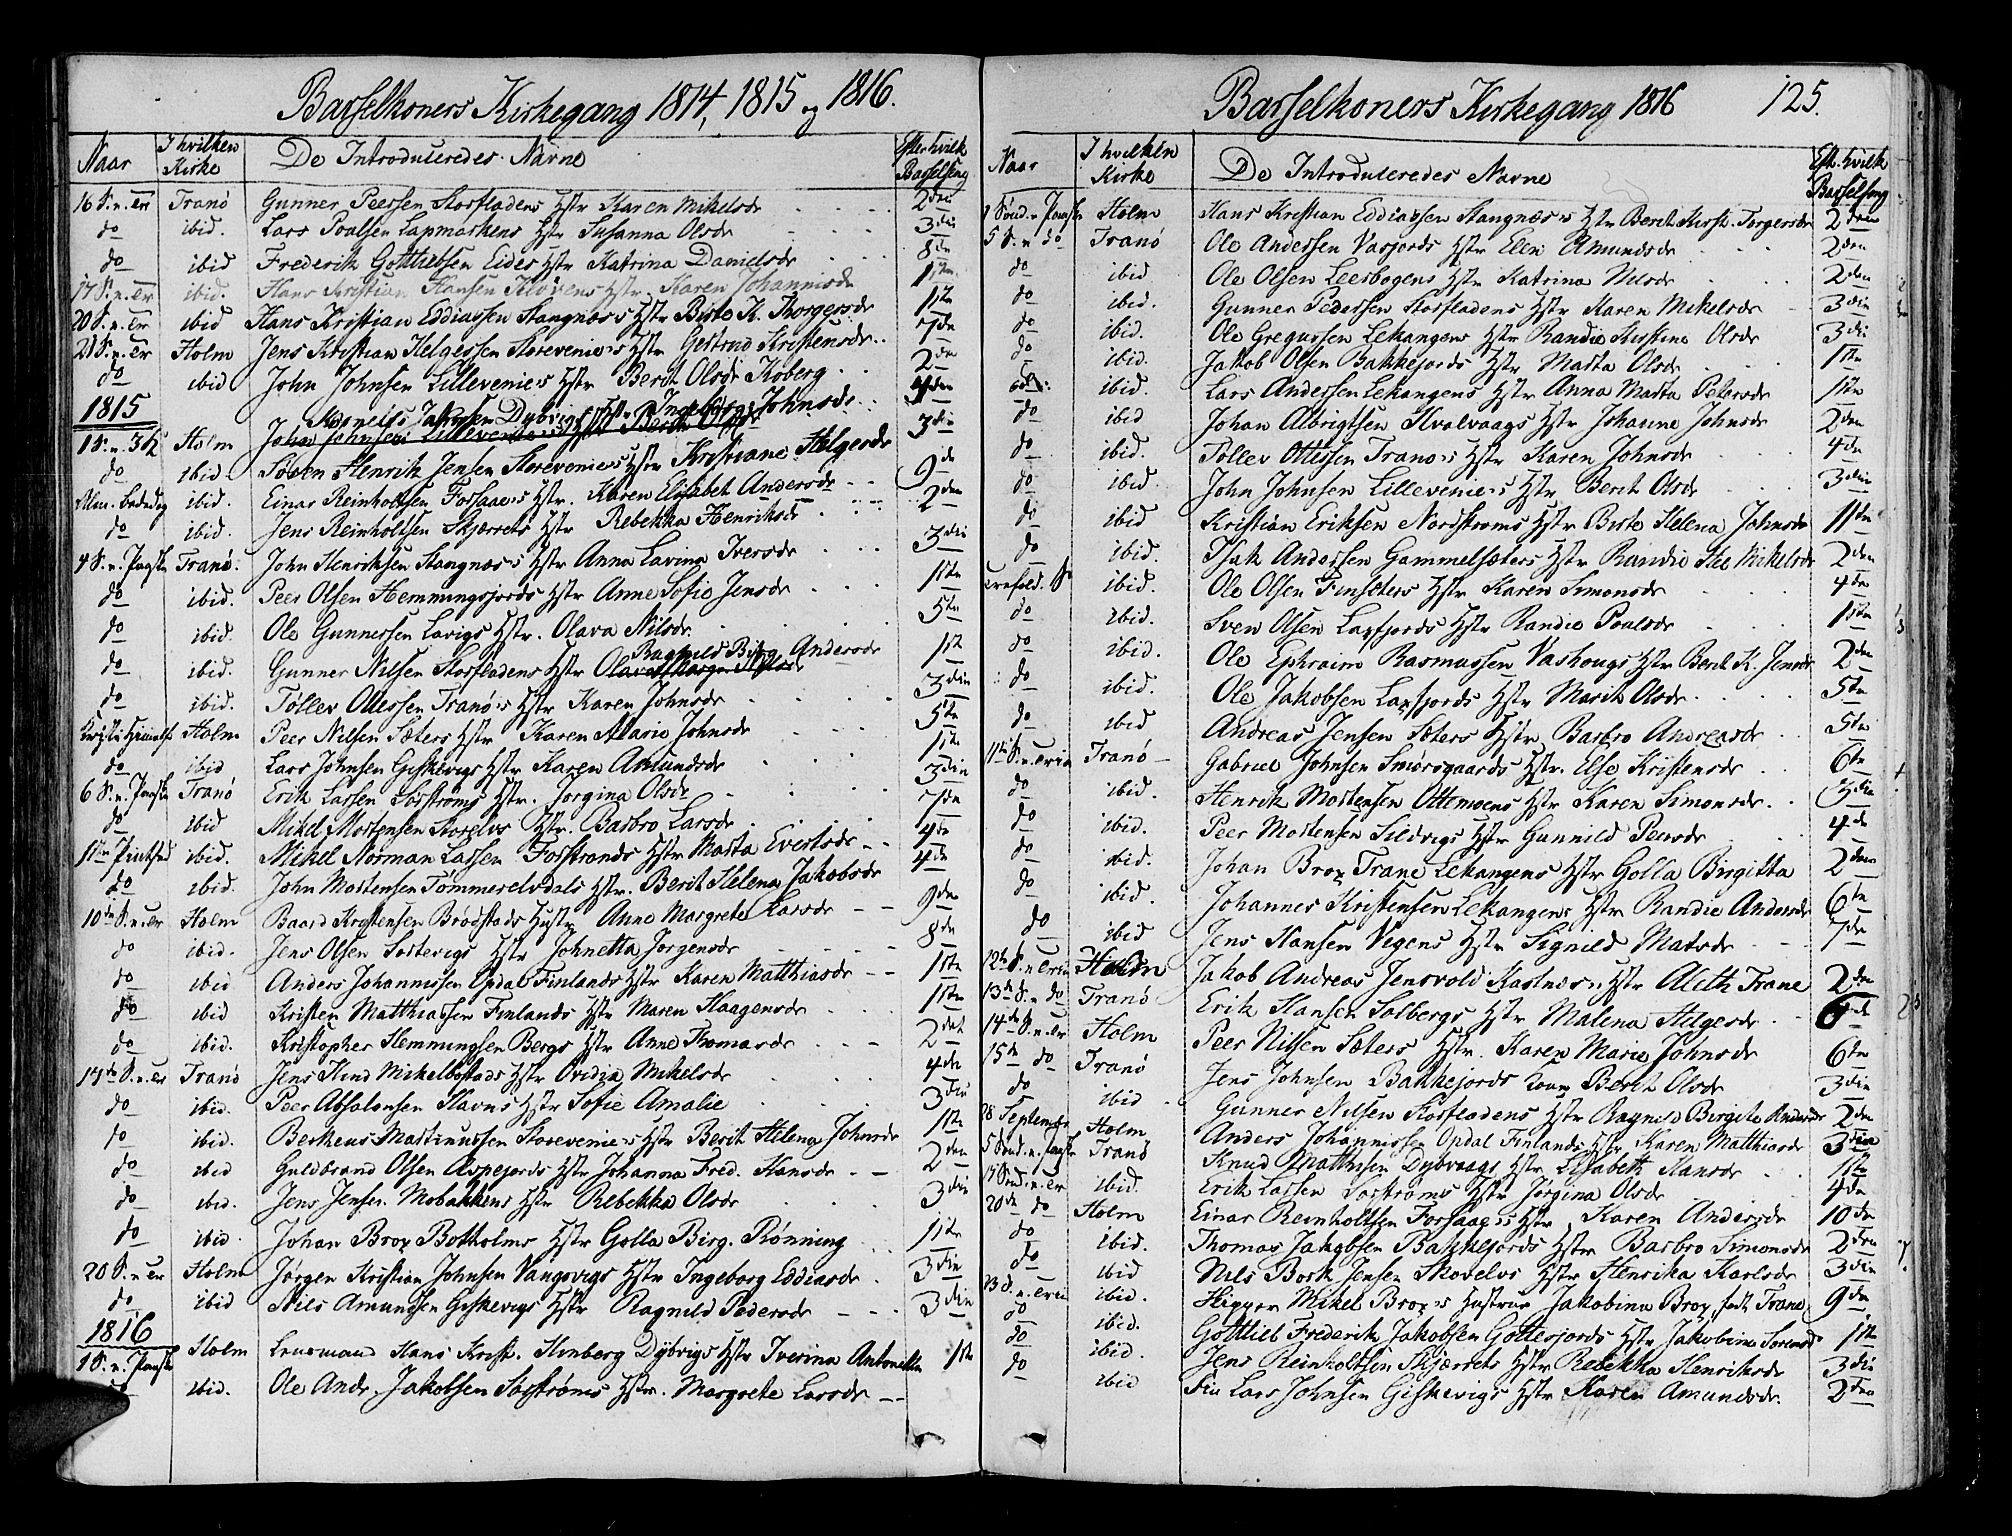 Barselkoners Kirkegang 1814, 1815 og 1816.
Naar
I hvilken Kirke
De Introduceredes Navne
Efter hvilk Barselseng
16 S. n. Tr Tranø Gunner Peersen Storfladens Hstr Karen Mikelsdr 2den
do ibid. Lars Poulsen Lapmarkens Hstr Susanna Olsdr 3die
do ibid Frederik Gottliebsen Eides Hstr Katrina Danielsdr 8de
17 S. n. Tr ibid. Hans Kristian Hansen Hstr. Karen Johannisdr 1ste
20 S. n. Tr ibid Hans Kristian Eddiassen Stangnæs's Hstr Birte K. Thorgersdr 1ste
21 S. n. Tr Holm Jens Kristian Helgessen Storevenie's Hstr Gertrud Kristensdr 7de
do ibid John Johnsen Lillevenie's Hstr Berit Olsdr Koberg 2den
1815
Kornelis Jakobsen Dybvigs Hstr Ingeborg Johnsdr
1 S. n. 3 K Holm John Johnsen Lillevenies Hstr Berit Olsdr 3die
do ibid Søven Henrik Jensen Storevenie's Hstr Kristiane Helgesdr 9de
Alm. Bededag ibid. Einar Reinholtsen Forsaae's Hstr. Karen Elisabet Andersdr 2den
do ibid. Jens Reinholtsen Skjærrets Hstr Rebekka Henriksdr 3die
4 S. n. Paaske Tranø John Henriksen Stangnæs's Hstr Anna Lavina Iversdr
do ibid. Peer Olsen Hemmingsjords Hstr Anne Sofie Jensdr 1ste
do ibid. Ole Gunnersen Lavigs Hstr. Olava Nilsdr. 5te
do ibid. Gunner Nilsen Storfladens Hstr Ragnild Birg. Andersdr 1ste
do ibid. Tøllev Ottessen Tranø's Hstr Karen Johnsdr 3die
Kristi Himmelf Holm Peer Nilsen Sæters Hstr Karen Marie Johnsdr 5te
do ibid Lars Johnsen Giskevigs Hstr Karen Amundsdr 1ste
6 S. n. Paaske Tranø Erik Larsen Sørstrøms Hstr. Jørgina Olsdr 3die
do ibid Mikel Mortensen Storelvs Hstr. Barbro Larsdr 7de
1ste Pintsed ibid. Mikel Norman Lassen Forstrands Hstr Marta Evertsdr 4de
do ibid. John Mortensen Tømmerelvdals Hstr. Berit Helena Jakobsdr 4de
10de S. n. Tr Holm Baard Kristensen Brødstads Hustr Anne Margrete Larsdr 9de
do ibid. Jens Olsen Sæterigs Hstr Johnetta Jørgensdr 8de
do ibid Anders Johannissen Opdal Finlands Hstr Karen Matthiasdr 1ste
do ibid Kristen Matthiassen Finlands Hstr Maren Haagensdr 1ste
do ibid. Kristopher Hemmingsen Bergs Hstr Anne Thomasdr 2det
14de S. n. Tr Tranø Jens Hind Mikelbostads Hstr Ovidia Mikelsdr 4de
do ibid. Peer Absalonsen Havns Hstr Sofie Amalie 3die
do ibid. Berheus Martinussen Storevenie's Hstr Berit Helena Johnsdr 1ste
do ibid Guldbrand Olsen Aspejords Hstr Johanna Fred. Hansdr 2den
do ibid. Jens Jensen Mobakkens Hstr Rebekka Olsdr 3die
do ibid. Johan Brox Botholms Hstr Golla Birg. Rønning 1ste
20 S. n Tr Holm Jørgen Kristian Johnsen Vangsvigs Hstr Ingeborg Eddiasdr 3die
do ibid Nils Amundsen Giskevigs Hstr Ragnild Pedersdr 3die
1816
1 S. n. Paaske Holm Lensmand Hans Krist. Hinberg Dybvigs Hstr Iverina Antonetta 1ste
do ibid. Ole Andr. Jakobsen Sørstrøms Hstr. Margrete Larsdr
Barselkoners Kirkegang 1816
125.
Naar
I hvilken Kirke
De Introduceredes Navne
Eft. hvilk Barselseng
1 Sønd. n Paaske Holm Hans Kristian Eddiassen Stangnæs's Hstr Berit Kirst. Torgersdr 2den
5 S. n do Tranø Ole Andersen Vasjords Hstr Elen Amundsdr 2den
do ibid Ole Olsen Leerbogens Hstr Katrina Nilsdr 2den
do ibid. Gunner Pedersen Storfladens Hstr Karen Mikelsdr 3die
do ibid. Ole Gregussen Lekangens Hstr Randie Kirstina Olsdr 3die
do ibid. Jakob Olsen Bakkejords Hstr Marta Olsdr 1ste
ibid. Lars Andersen Lekangens Hstr Anna Marta Petersdr 1ste
do ibid Johan Albrigtsen Kvalvaags Hstr Johanne Johnsdr 2den
do ibid. Tøllev Ottessen Tranøs Hstr Karen Johnsdr 4de
do ibid. John Johnsen Lillevenie's Hstr Berit Olsdr 3die
do ibid Kristian Eriksen Nordstrøms Hstr Birte Helena Johnsdr 11te
do ibid. Isak Andersen Gammelsæters Hstr Randie Mikelsdr 2den
ibid. Ole Olsen Finsæters Hstr Karen Simonsdr 4de
do ibid. Sven Olsen Laxfjords Hstr Randie Poulsdr 1ste
do ibid. Ole Ephraim Rasmussen Vashougs Hstr Berit K. Jensdr 2den
do ibid. Ole Jakobsen Laxfjords Hstr Marit Olsdr 5te
do ibid Andreas Jensen Sæters Hstr Barbro Andreasdr 5te
11te S. n Trin Tranø Gabriel Johnsen Smørsgaards Hstr. Else Kristensdr 6te
do ibid. Henrik Mortensen Ottemoens Hstr Karen Simonsdr 3die
do ibid. Peer Mortensen Sildvigs Hstr Gunnild Peersdr 4de
do ibid. Johan Brox Trane Lekangens Hstr Golla Birgitta 2den
do ibid. Johannes Kristensen Lekangens Hstr Randie Andersdr 6te
do ibid Jens Hansen Vegens Hstr Signild Matsdr 7de
12te S. n Trin Holm Jakob Andreas Jensvold Kastnæs's Hstr Aleth Trane 2den
13de S. n do Tranø Erik Hansen Solbergs Hstr Malena Helgesdr 6te
14de S. n. Tr Holm Peer Nilsen Sæters Hstr. Karen Marie Johnsdr 6te
15de do Tranø Jens Johnsen Bakkejords Kone Berit Olsdr 3die
do ibid Gunner Nilsen Storfladens Hstr Ragnild Birgite Andersdr 2den
28 September Holm Anders Johannissen Opdal Finlands Hstr Karen Matthiasdr 3die
5 Sønd. n. Paaske Tranø Knud Mathisen Dybvaags Hstr Elisabeth Hansdr 1ste
17 Sønd. n. Tr ibid. Erik Larsen Sørstrøms Hstr Jørgina Olsdr 4de
20de do Holm Einar Reinholtsen Forsaae's Hstr Karen Andersdr 10de
do ibid. Thomas Jakobsen Bakkejords Hstr Barbro Simonsdr 2den
do ibid Nils Bork Jensen Skovelvs Hstr Henrika Karlsdr 3die
23 S. n. Trin ibid. Skipper Mikel Brox's Hustrue Jakobina Brox født Trane 9de
do ibid. Gottlieb Frederik Jakobsen Gottesjords Hstr Jakobine Sørensd 1ste
do ibid. Jens Reinholtsen Skjærrets Hstr Rebekka Henriksdr 3die
do ibid Lars Johnsen Giskevigs Hstr Karen Amundsdr. 2den